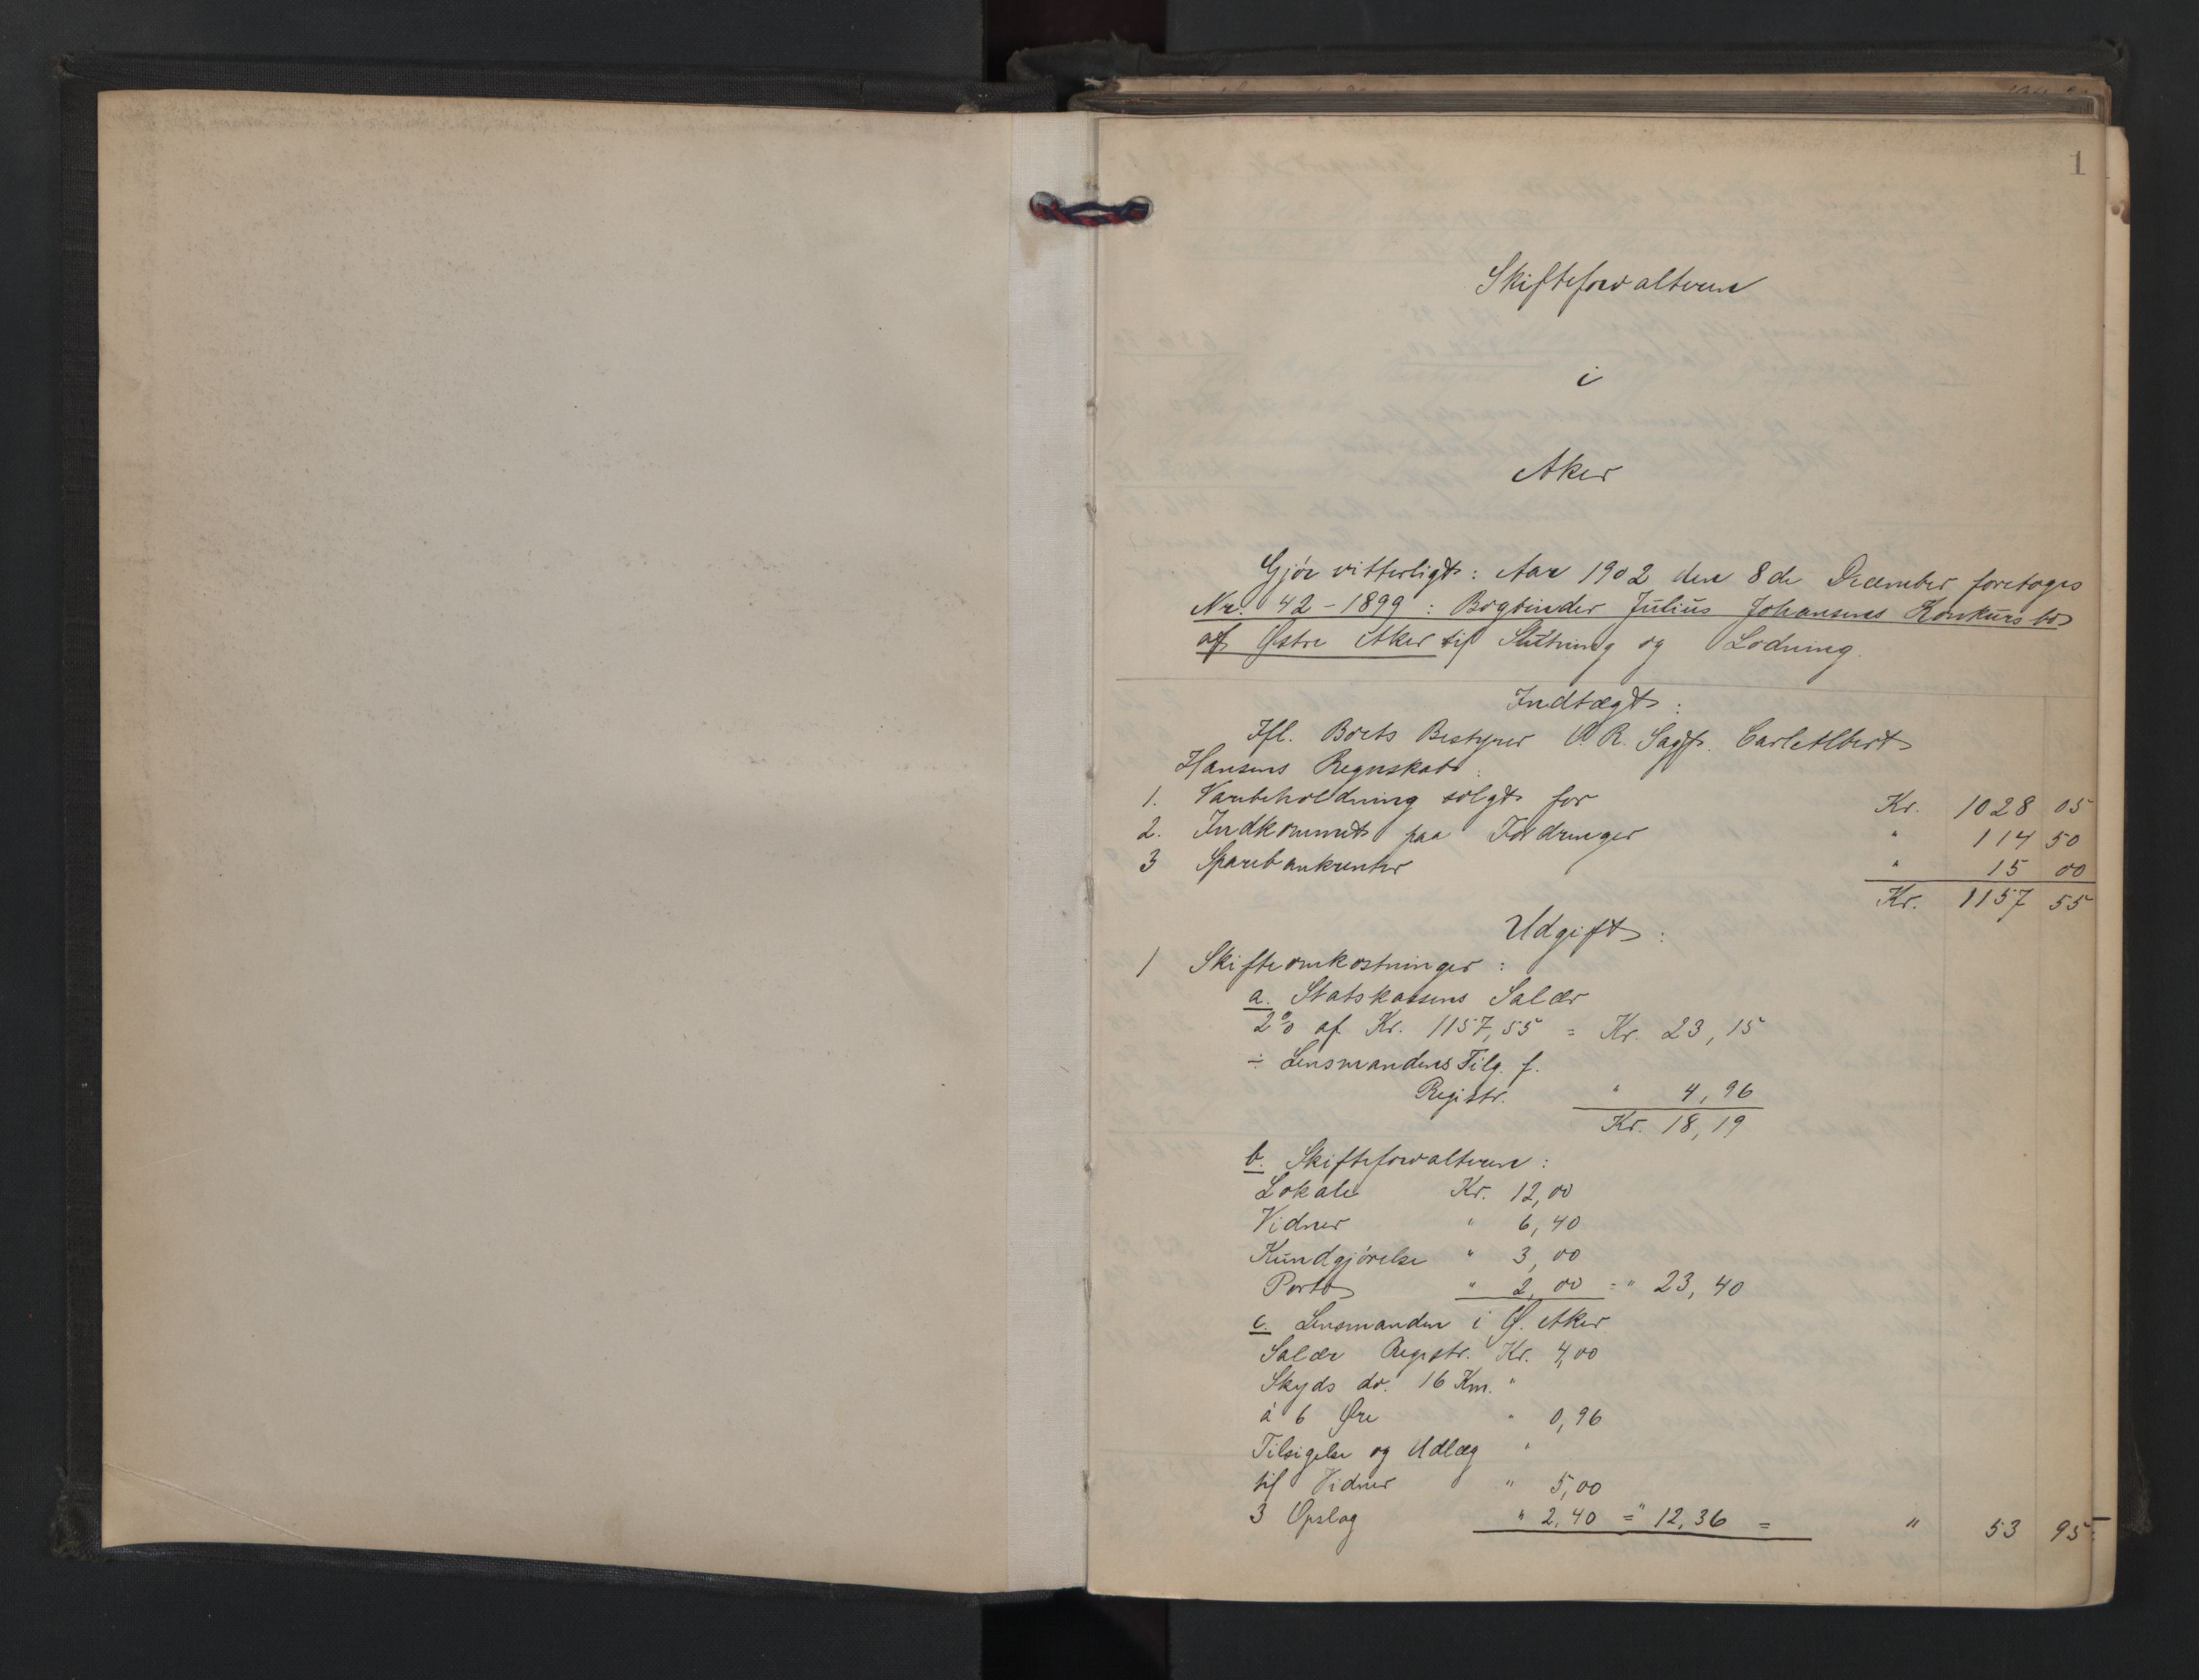 1
Skifteforvalteren
i
Aker
Gjör vitterligt: Aar 1902 den 8de December foretoges
Nr. 42 - 1899: Bogbinder Julius Johansens Konkursbo
af Østre Aker til Slutning og Lodning.
Indtægt:
Ifl. Boets Bestyrer O. R. Sagf. Carl Albert
Hansens Regnskab:
1. Varebeholdning solgt for Kr. 1028 05
2. Indkommet paa Fordringer " 114 50
3 Sparebankrenter " 15 00
Kr. 1157 55
Udgift:
1 Skifteomkostninger:
a. Statskassens Salær
2% af Kr. 1157,55 = Kr. 23,15
÷ Lensmandens Tilg. f.
Registr. " 4,96
Kr. 18,19
b. Skifteforvalteren:
Lokale Kr. 12,00
Vidner " 6,40
Kundgjörelse " 3,00
Porto " 2,00 = " 23,40
c. Lensmanden i Ø. Aker
Salær Registr. Kr. 4,00
Skyds do. 16 Km. "
à 6 Øre " 0,96
Tilsigelse og Udlæg "
til Vidner " 5,00
3 Opslag " 2,40 = " 12,36 = " 53 95